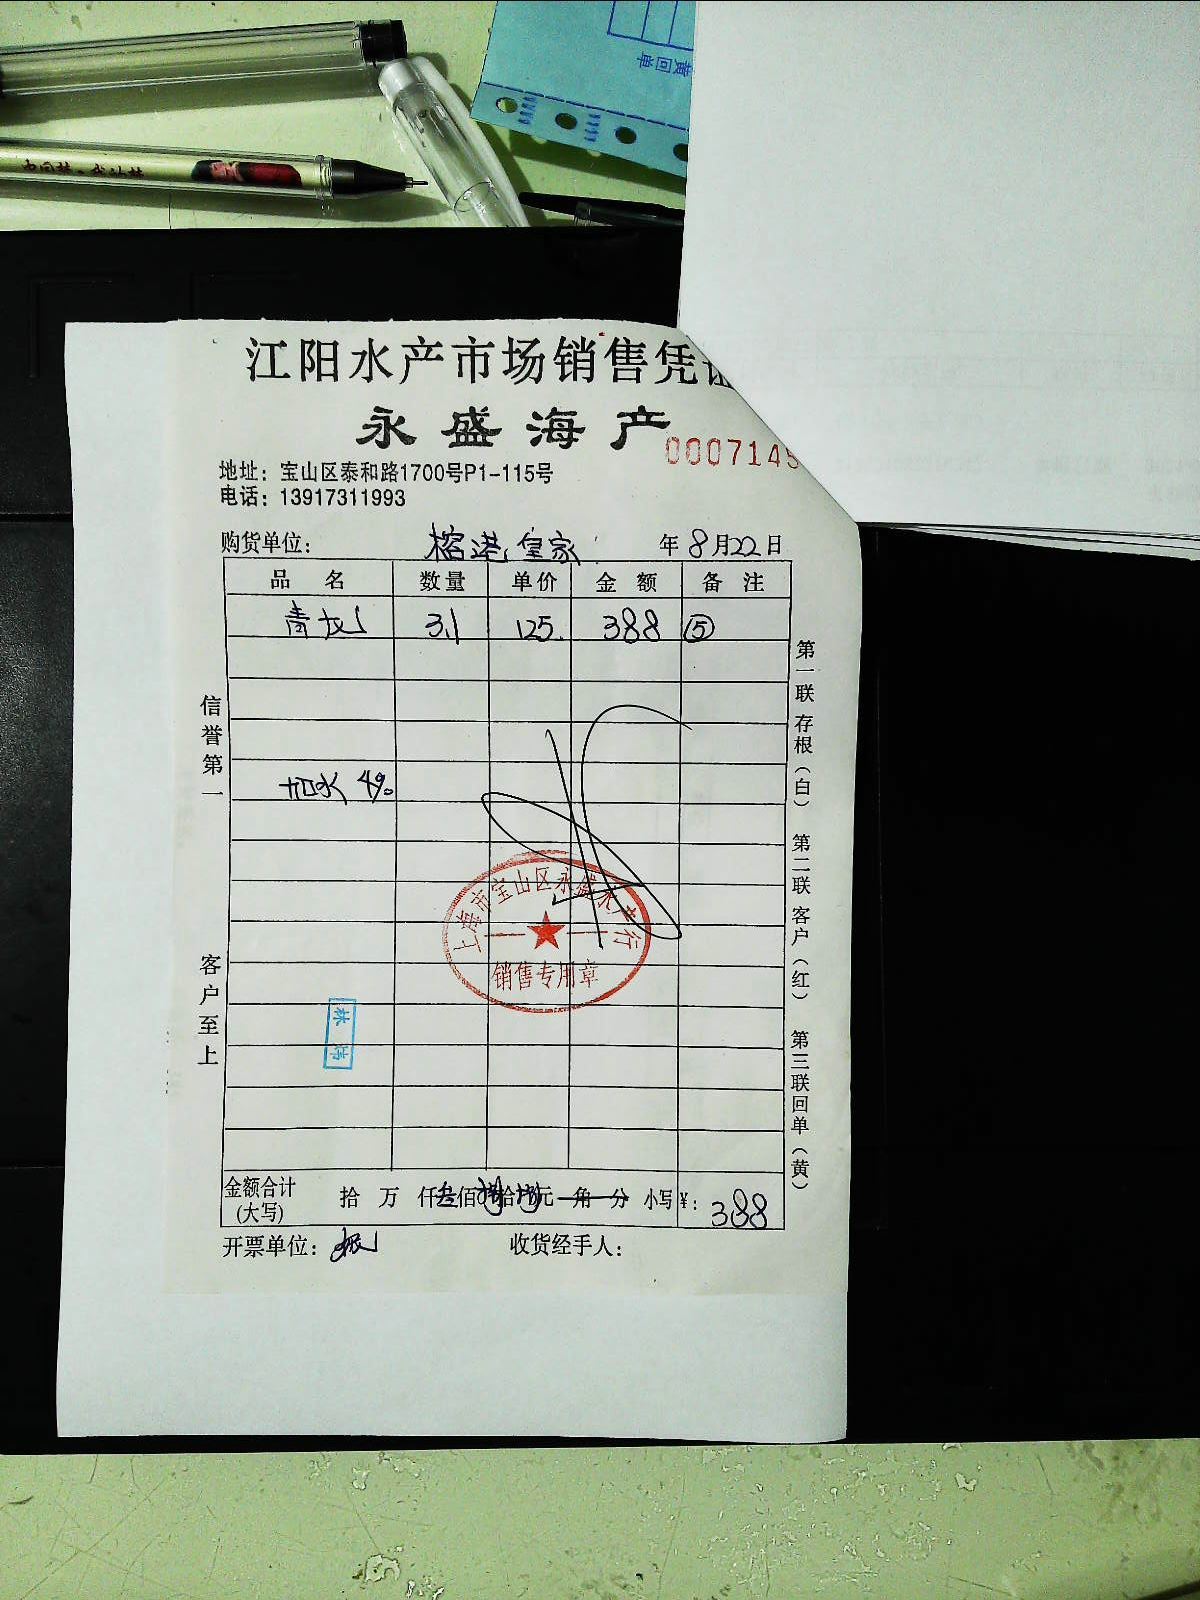 黄回单
中国梦·我的梦
江阳水产市场销售凭证
永盛海产
0007145
地址：宝山区泰和路1700号P1-115号
电话：13917311993
购货单位： 榕港皇家 年 8 月 22 日
品 名 数量 单价 金 额 备 注
青龙 3.1 125. 388 ⑤
扣水 4%
信誉第一
客户至上
上海市宝山区永盛水产行
销售专用章
林
第一联 存根（白） 第二联 客户（红） 第三联 回单（黄）
金额合计(大写) 拾 万 仟 叁佰 捌拾 捌元 角 分 小写￥: 388
开票单位： 收货经手人：